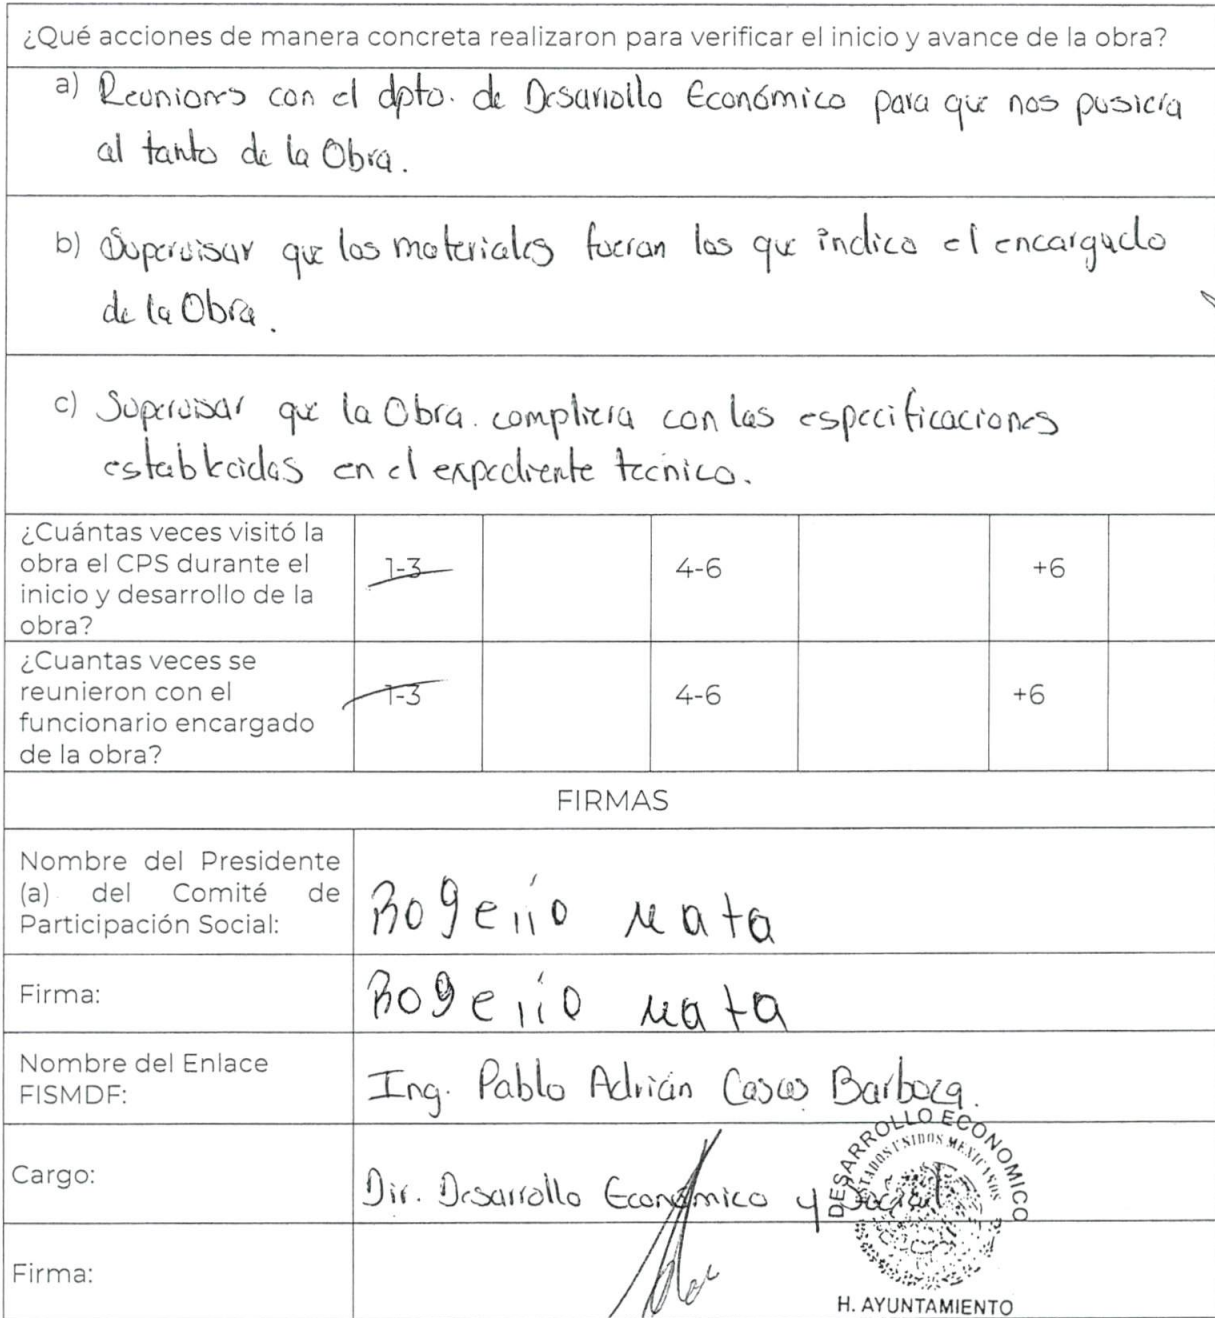 ¿Qué acciones de manera concreta realizaron para verificar el inicio y avance de la obra?
a) Reuniones con el dpto. de Desarrollo Económico para que nos pusiera
al tanto de la Obra.
b) Supervisar que los materiales fueran los que indico el encargado
de la Obra.
c) Supervisar que la Obra. compliera con las especificaciones
establecidas en el expediente tecnico.
¿Cuántas veces visitó la
obra el CPS durante el
inicio y desarrollo de la
obra?
1-3 4-6 +6
¿Cuantas veces se
reunieron con el
funcionario encargado
de la obra?
1-3 4-6 +6
FIRMAS
Nombre del Presidente
(a) del Comité de
Participación Social:
Rogelio Mata
Firma:
Rogelio Mata
Nombre del Enlace
FISMDF:
Ing. Pablo Adrián Casas Barboza.
Cargo:
Dir. Desarrollo Económico y Social
Firma:
DESARROLLO ECONOMICO
ESTADOS UNIDOS MEXICANOS
H. AYUNTAMIENTO